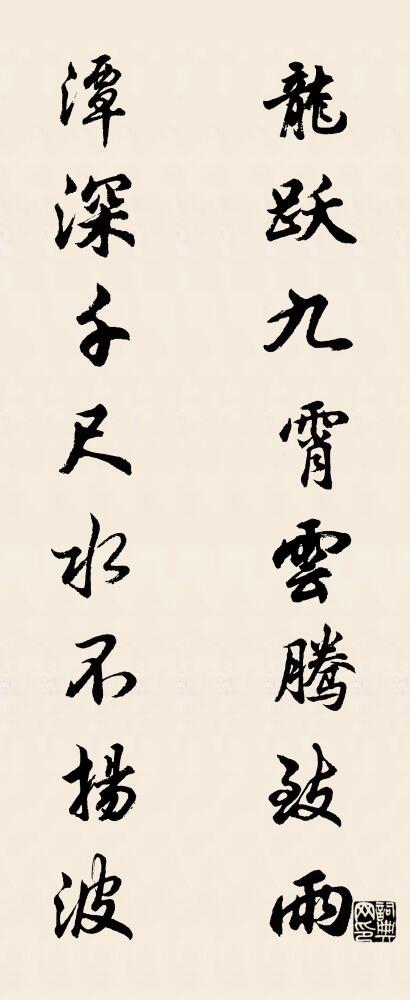 龍跃九霄雲腾致雨
潭深千尺水不揚波
詞典网印